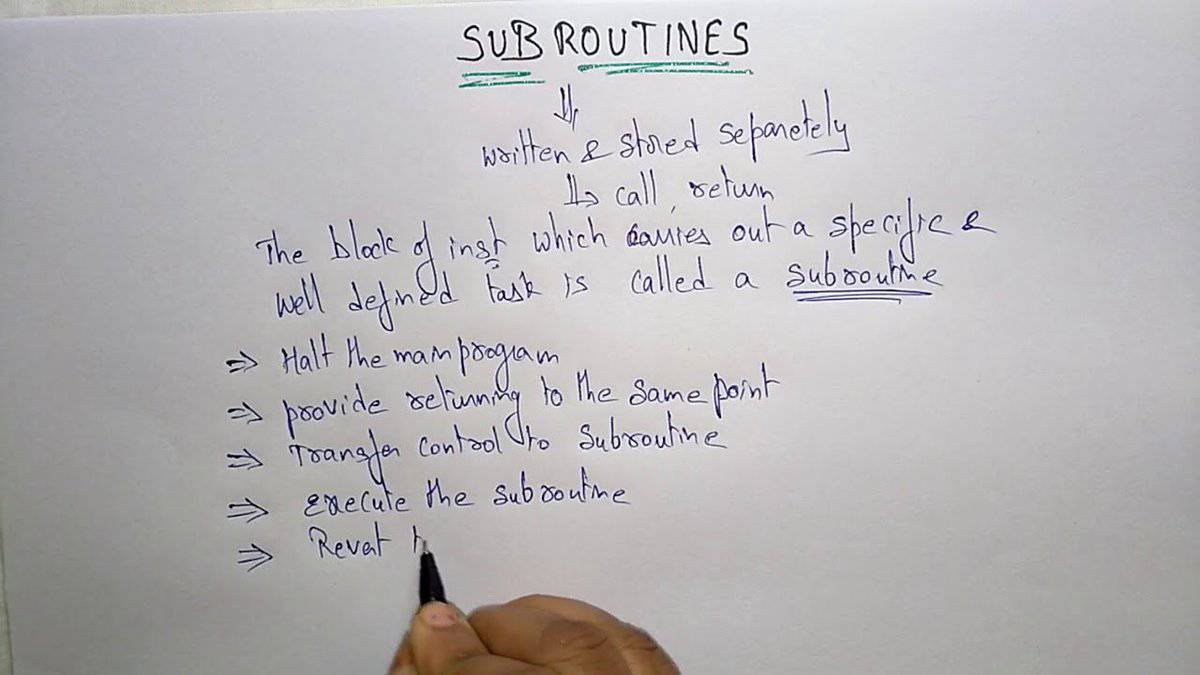 SUBROUTINES
⇓
written & stored separetely
↳ call, return
The block of inst which carries out a specific &
well defined task is called a subroutine
⇒ Halt the main program
⇒ provide returning to the same point
⇒ Transfer control to subroutine
⇒ Execute the subroutine
⇒ Revert